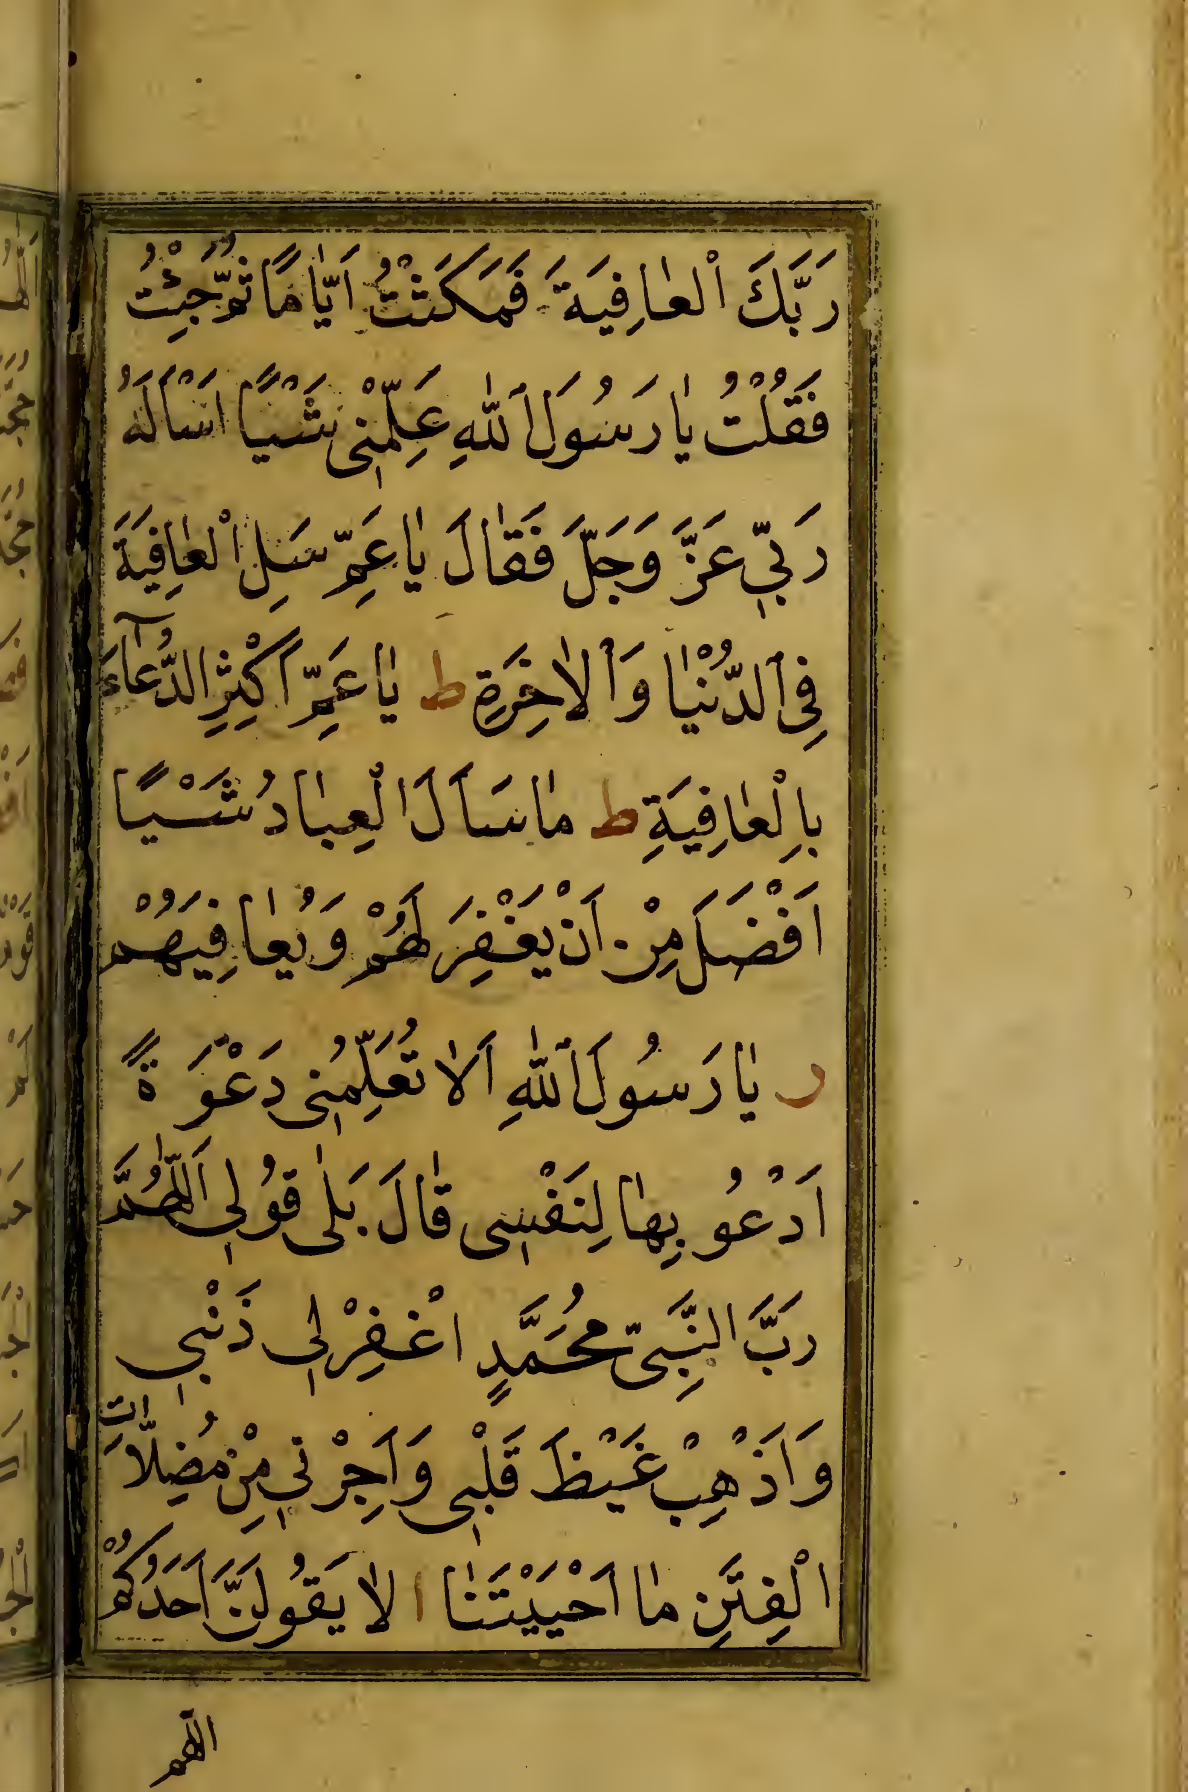 رَبَّكَ الْعَافِيَةَ فَمَكَثْتُ اَيَّامًا ثُمَّ جِئْتُ
فَقُلْتُ يَا رَسُولَ اللهِ عَلِّمْنِي شَيْـًٔا اَسْاَلُهُ
رَبِّي عَزَّ وَجَلَّ فَقَالَ يَا عَمِّ سَلِ الْعَافِيَةَ
فِي الدُّنْيَا وَالْاٰخِرَةِ ط يَا عَمِّ اَكْثِرِ الدُّعَآءَ
بِالْعَافِيَةِ ط مَا سَاَلَ الْعِبَادُ شَيْـًٔا
اَفْضَلَ مِنْ اَنْ يَغْفِرَ لَهُمْ وَيُعَافِيَهُمْ
ر يَا رَسُولَ اللهِ اَلَا تُعَلِّمُنِي دَعْوَةً
اَدْعُو بِهَا لِنَفْسِي قَالَ بَلٰى قُولِي اَللّٰهُمَّ
رَبَّ النَّبِيِّ مُحَمَّدٍ اغْفِرْ لِي ذَنْبِي
وَاَذْهِبْ غَيْظَ قَلْبِي وَاَجِرْنِي مِنْ مُضِلَّاتِ
الْفِتَنِ مَا اَحْيَيْتَنَا ا لَا يَقُولَنَّ اَحَدُكُمْ
اللهم